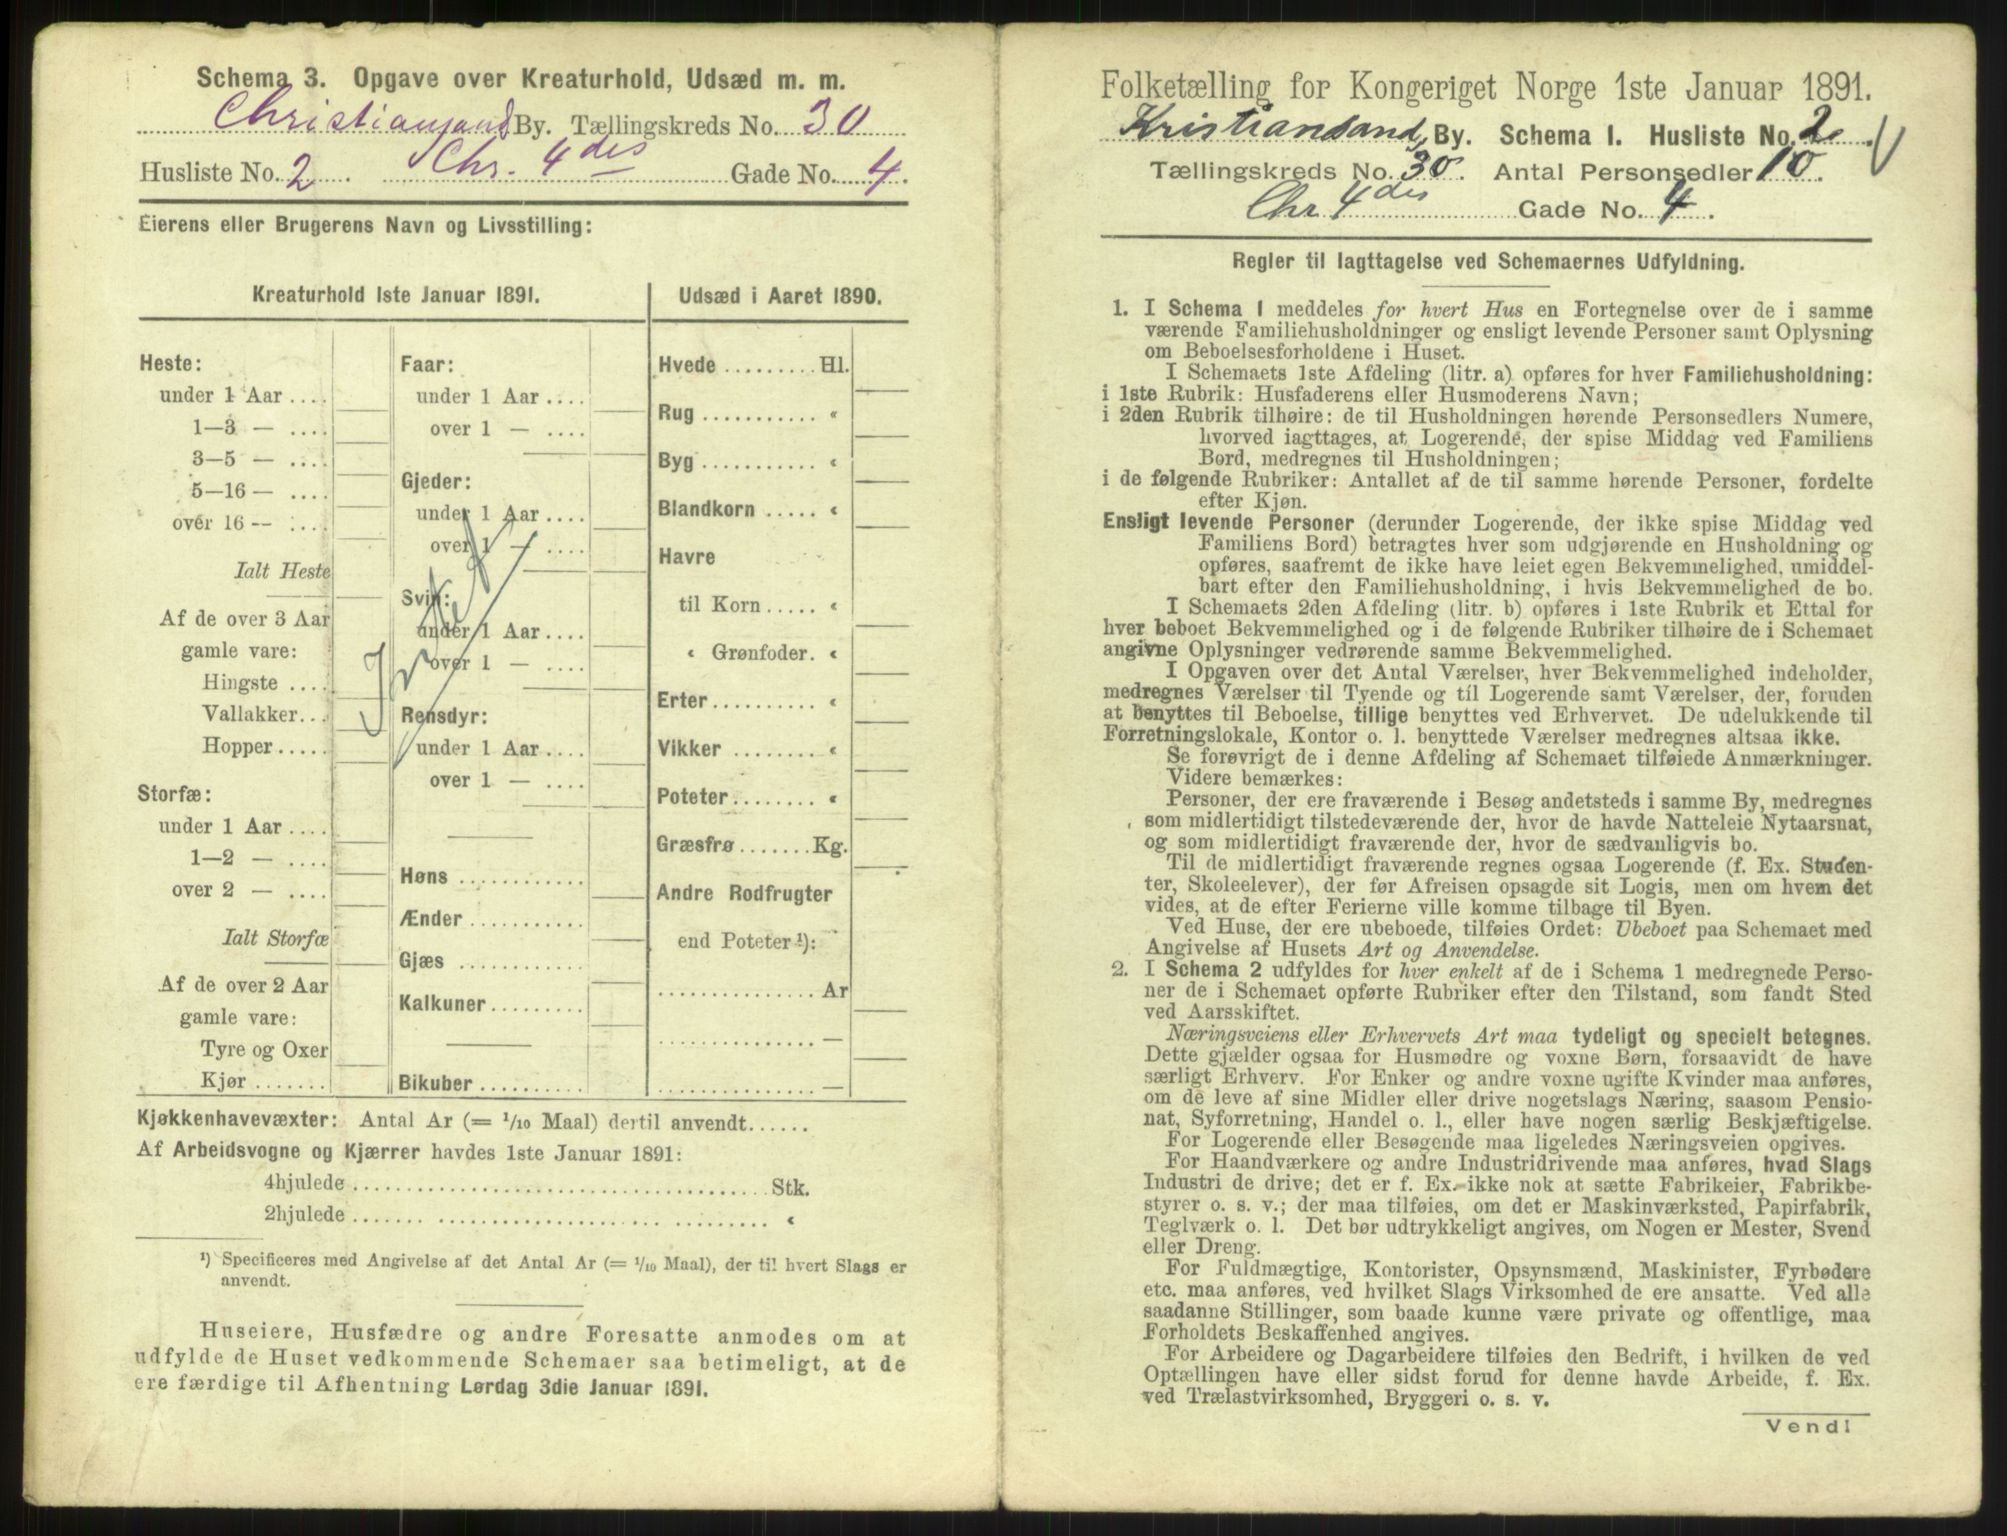 Schema 3. Opgave over Kreaturhold, Udsæd m. m.
Christiansand By. Tællingskreds No. 30
Husliste No. 2. Chr. 4des Gade No. 4.
Eierens eller Brugerens Navn og Livsstilling:
Kreaturhold 1ste Januar 1891.
Heste:
under 1 Aar ....
1—3 — ....
3—5 — ....
5—16 — ....
over 16 -- ....
Ialt Heste
Af de over 3 Aar
gamle vare:
Hingste ....
Vallakker...
Hopper.....
Storfæ:
under 1 Aar ....
1—2 — ....
over 2 — ....
Ialt Storfæ
Af de over 2 Aar
gamle vare:
Tyre og Oxer
Kjør .......
Faar:
under 1 Aar ....
over 1 — ....
Gjeder:
under 1 Aar ....
over 1 — ....
Svin:
under 1 Aar ....
over 1 — ....
Rensdyr:
under 1 Aar ....
over 1 — ....
Høns ............
Ænder ...........
Gjæs ............
Kalkuner.........
Bikuber ..........
Intet
Udsæd i Aaret 1890.
Hvede ......... Hl.
Rug ........... «
Byg ........... «
Blandkorn ..... «
Havre
til Korn ..... «
« Grønfoder. «
Erter.......... «
Vikker ........ «
Poteter........ «
Græsfrø ....... Kg.
Andre Rodfrugter
end Poteter ¹):
............... Ar
............... —
............... —
Kjøkkenhavevæxter: Antal Ar (= 1/10 Maal) dertil anvendt......
Af Arbeidsvogne og Kjærrer havdes 1ste Januar 1891:
4hjulede ..................................... Stk.
2hjulede ..................................... «
¹) Specificeres med Angivelse af det Antal Ar (= 1/10 Maal), der til hvert Slags er
anvendt.
Huseiere, Husfædre og andre Foresatte anmodes om at
udfylde de Huset vedkommende Schemaer saa betimeligt, at de
ere færdige til Afhentning Lørdag 3die Januar 1891.
Folketælling for Kongeriget Norge 1ste Januar 1891.
Kristiansand By. Schema I. Husliste No. 2.
Tællingskreds No. 30. Antal Personsedler 10.
Chr 4des Gade No. 4.
Regler til Iagttagelse ved Schemaernes Udfyldning.
1. I Schema 1 meddeles for hvert Hus en Fortegnelse over de i samme
værende Familiehusholdninger og ensligt levende Personer samt Oplysning
om Beboelsesforholdene i Huset.
I Schemaets 1ste Afdeling (litr. a) opføres for hver Familiehusholdning:
i 1ste Rubrik: Husfaderens eller Husmoderens Navn;
i 2den Rubrik tilhøire: de til Husholdningen hørende Personsedlers Numere,
hvorved iagttages, at Logerende, der spise Middag ved Familiens
Bord, medregnes til Husholdningen;
i de følgende Rubriker: Antallet af de til samme hørende Personer, fordelte
efter Kjøn.
Ensligt levende Personer (derunder Logerende, der ikke spise Middag ved
Familiens Bord) betragtes hver som udgjørende en Husholdning og
opføres, saafremt de ikke have leiet egen Bekvemmelighed, umiddel-
bart efter den Familiehusholdning, i hvis Bekvemmelighed de bo.
I Schemaets 2den Afdeling (litr. b) opføres i 1ste Rubrik et Ettal for
hver beboet Bekvemmelighed og i de følgende Rubriker tilhøire de i Schemaet
angivne Oplysninger vedrørende samme Bekvemmelighed.
I Opgaven over det Antal Værelser, hver Bekvemmelighed indeholder,
medregnes Værelser til Tyende og til Logerende samt Værelser, der, foruden
at benyttes til Beboelse, tillige benyttes ved Erhvervet. De udelukkende til
Forretningslokale, Kontor o. l. benyttede Værelser medregnes altsaa ikke.
Se forøvrigt de i denne Afdeling af Schemaet tilføiede Anmærkninger.
Videre bemærkes:
Personer, der ere fraværende i Besøg andetsteds i samme By, medregnes
som midlertidigt tilstedeværende der, hvor de havde Natteleie Nytaarsnat,
og som midlertidigt fraværende der, hvor de sædvanligvis bo.
Til de midlertidigt fraværende regnes ogsaa Logerende (f. Ex. Studen-
ter, Skoleelever), der før Afreisen opsagde sit Logis, men om hvem det
vides, at de efter Ferierne ville komme tilbage til Byen.
Ved Huse, der ere ubeboede, tilføies Ordet: Ubeboet paa Schemaet med
Angivelse af Husets Art og Anvendelse.
2. I Schema 2 udfyldes for hver enkelt af de i Schema 1 medregnede Perso-
ner de i Schemaet opførte Rubriker efter den Tilstand, som fandt Sted
ved Aarsskiftet.
Næringsveiens eller Erhvervets Art maa tydeligt og specielt betegnes.
Dette gjælder ogsaa for Husmødre og voxne Børn, forsaavidt de have
særligt Erhverv. For Enker og andre voxne ugifte Kvinder maa anføres,
om de leve af sine Midler eller drive nogetslags Næring, saasom Pensio-
nat, Syforretning, Handel o. l., eller have nogen særlig Beskjæftigelse.
For Logerende eller Besøgende maa ligeledes Næringsveien opgives.
For Haandværkere og andre Industridrivende maa anføres, hvad Slags
Industri de drive; det er f. Ex. ikke nok at sætte Fabrikeier, Fabrikbe-
styrer o. s. v.; der maa tilføies, om det er Maskinværksted, Papirfabrik,
Teglværk o. l. Det bør udtrykkeligt angives, om Nogen er Mester, Svend
eller Dreng.
For Fuldmægtige, Kontorister, Opsynsmænd, Maskinister, Fyrbødere
etc. maa anføres, ved hvilket Slags Virksomhed de ere ansatte. Ved alle
saadanne Stillinger, som baade kunne være private og offentlige, maa
Forholdets Beskaffenhed angives.
For Arbeidere og Dagarbeidere tilføies den Bedrift, i hvilken de ved
Optællingen have eller sidst forud for denne havde Arbeide, f. Ex.
ved Trælastvirksomhed, Bryggeri o. s. v.
Vend!